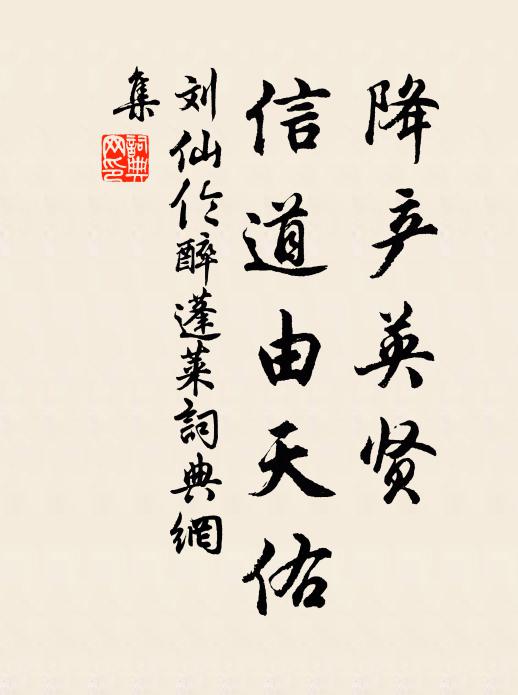 降产英贤
信道由天佑
刘仙伦醉蓬莱詞典網
集
詞典網印